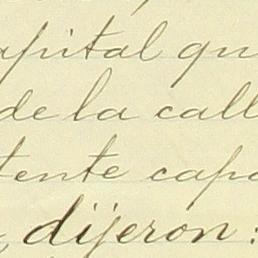 apital qu
de la call
tente capa
dijeron: